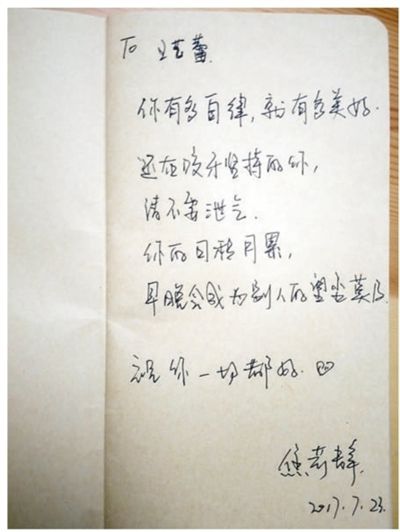 To 王艺蕾
你有多自律,就有多美好.
还在咬牙坚持的你,
请不要泄气.
你的日积月累,
早晚会成为别人的望尘莫及.
祝你一切都好.
2017.7.23.